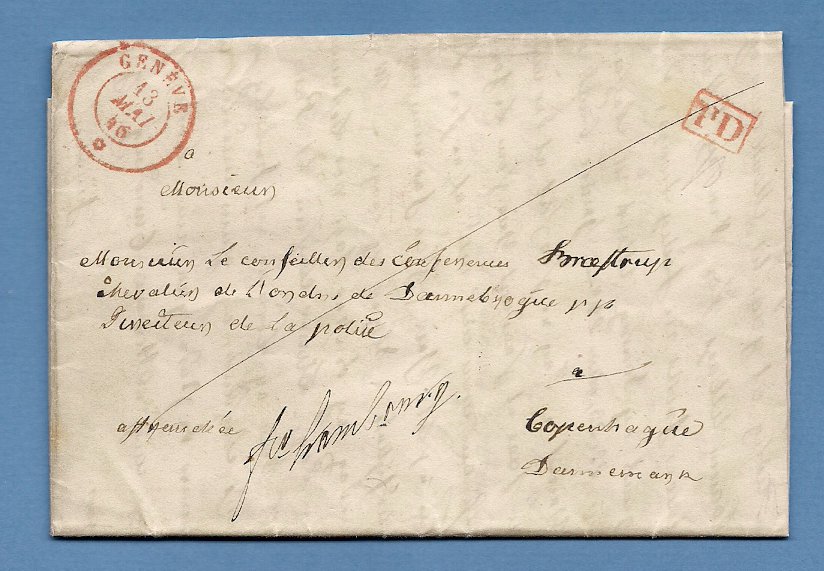 GENÈVE
13
MAI
46
PD
a
Monsieur
Monsieur Le conseiller des Conferences Braestrup
Chevalier de L'ordre de Dannebrogue pp
Directeur de La police
a
affranchée
fco hambourg.
Copenhague
Dannemark